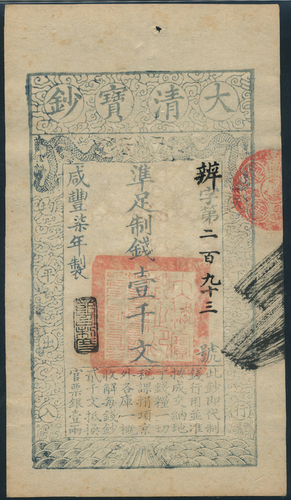 大清寶鈔
辦字第二百九十三號
準足制錢壹千文
咸豐柒年製
均平出入
此鈔即代制
錢行用並准
按成交納地
丁錢糧一切
稅課捐項京
外各庫一概
收解每錢鈔
貳千文抵換
官票銀壹兩